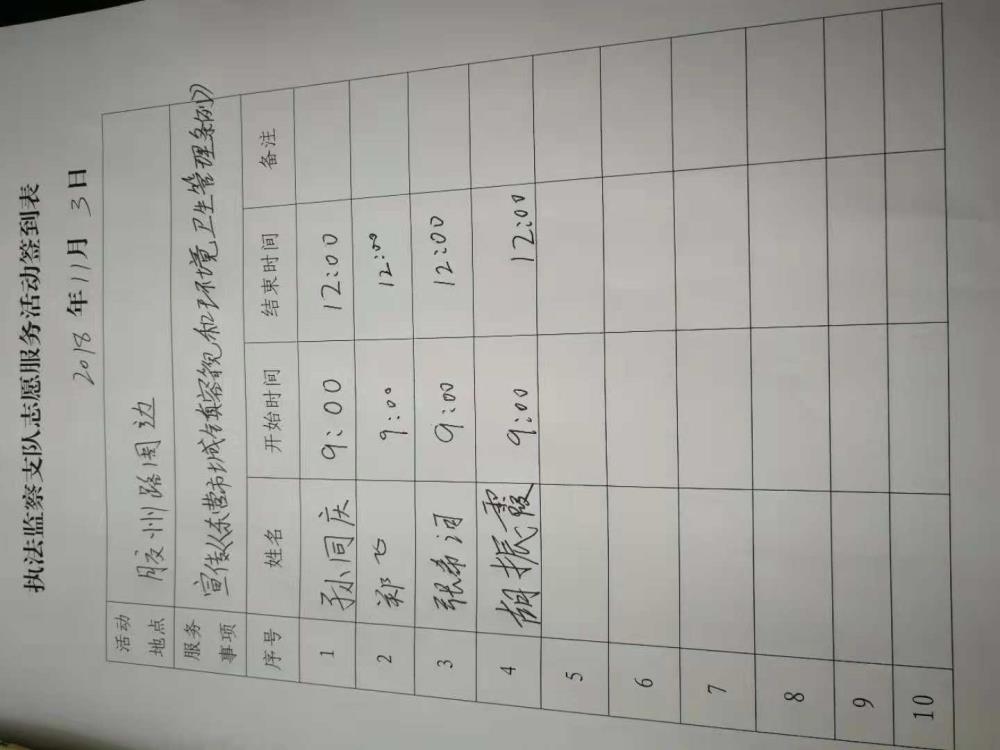 执法监察支队志愿服务活动签到表
2018年11月3日
活动地点 胶州路周边
服务事项 宣传《东营市城镇容貌和环境卫生管理条例》
序号 姓名 开始时间 结束时间 备注
1 孙同庆 9:00 12:00
2 郑飞 9:00 12:00
3 张希河 9:00 12:00
4 胡振霞 9:00 12:00
5
6
7
8
9
10